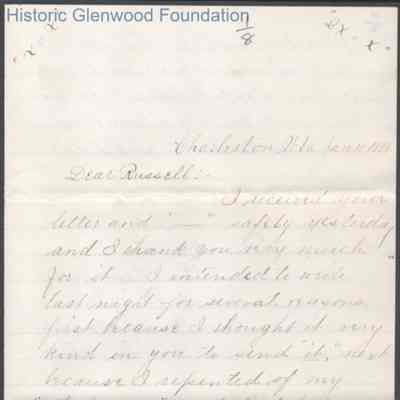 Historic Glenwood Foundation
1/8
"x" "x" "2x" "x"
Charleston W. Va Jan 10
Dear Russell:-
I received your
letter and "—" safely yesterday
and I thank you very much
for it. I intended to write
last night for several reasons
first because I thought it very
kind in you to send "it," next
because I repented of my